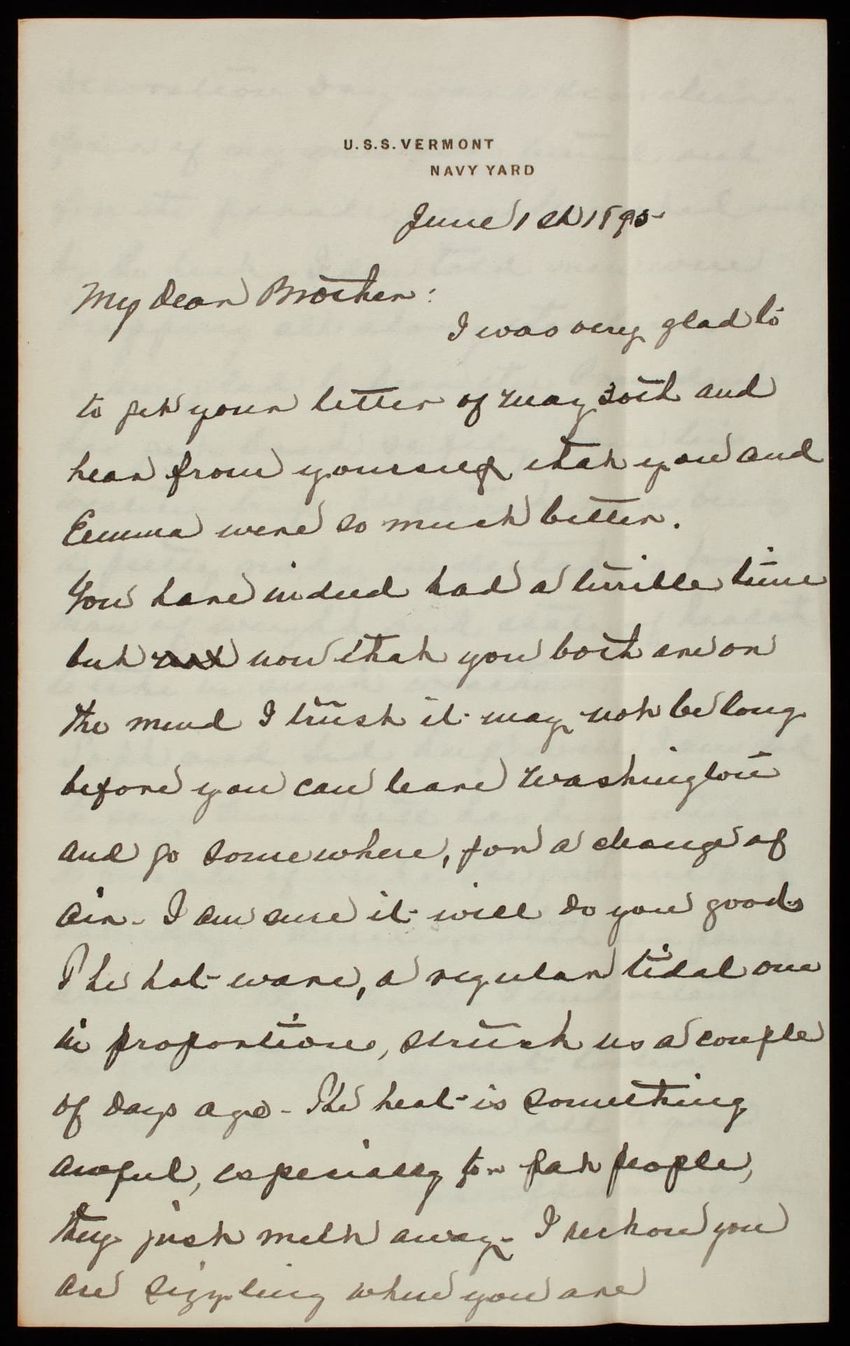 U.S.S. VERMONT
NAVY YARD
June 1st 1895
My dear Brother:
I was very glad to
to get your letter of May 30th and
hear from yourself that you and
Emma were so much better.
You have indeed had a terrible time
but now that you both are on
the mend I trust it may not be long
before you can leave Washington
and go somewhere, for a change of
air. I am sure it will do you good.
The hot wave, a regular tidal one
in proportion, struck us a couple
of days ago - The heat is something
awful, especially for fat people,
they just melt away. I reckon you
are sizzling where you are